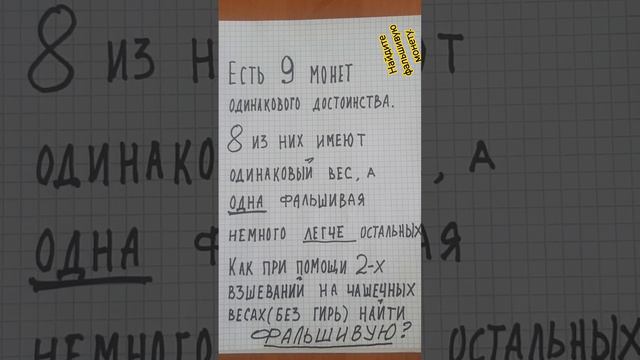 Найдите
фальшивую
монету.
Есть 9 монет
одинакового достоинства.
8 из них имеют
одинаковый вес, а
одна фальшивая
немного легче остальных
Как при помощи 2-х
взшеваний на чашечных
весах (без гирь) найти
фальшивую?